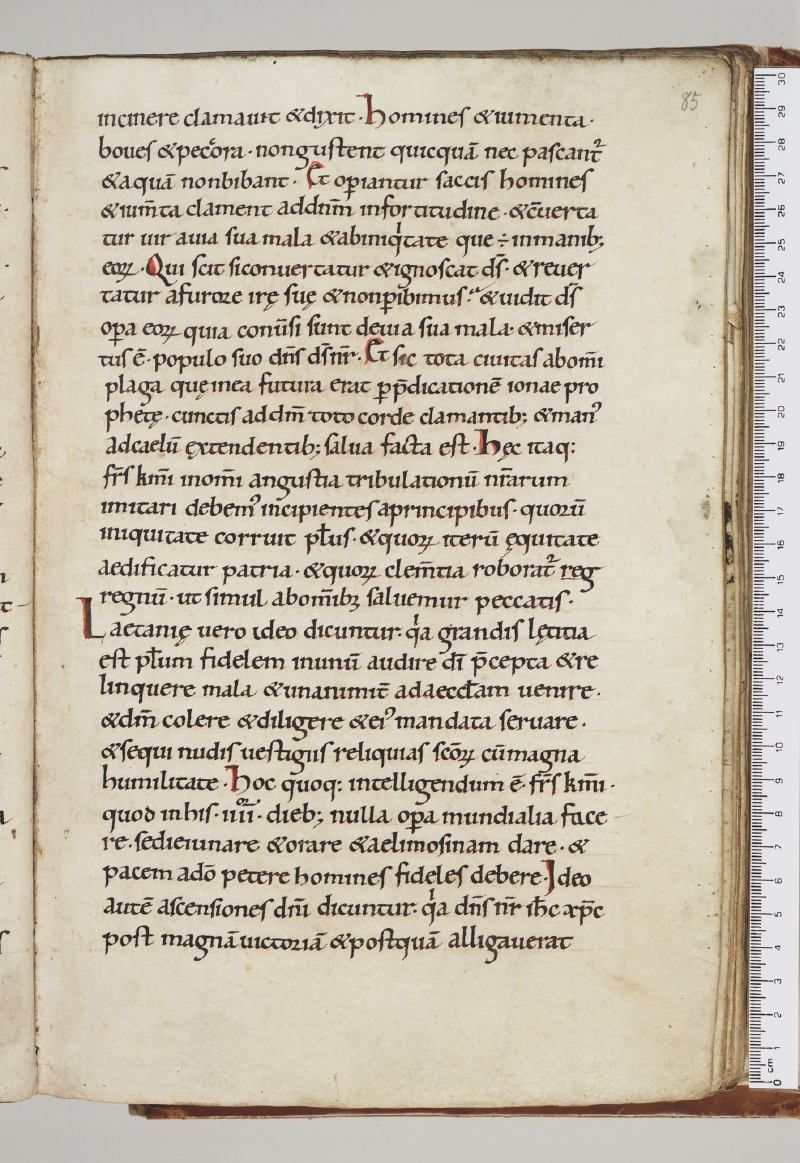 85
incinere clamauit &dixit · Homines &iumenta ·
boues &pecora · nongustent quicquā nec pascant᷑
&aquā nonbibant · Et op̄iantur saccis homines
&ium̄ta clament addn̄m infortitudine · &c̄uerta
tur uir auia sua mala &abiniqͥtate que ÷ inmanib;
eoꝝ · Qui scit siconuertatur &ignoscat ds̄ · &reuer
tatur afurore irę suę &nonꝑibimus · &uidit ds̄
oꝑa eoꝝ quia conūsi sunt deuia sua mala · &miser
tus ē · populo suo dn̄s ds̄ nr̄ · Et sic tota ciuitas abom̄i
plaga quęinea futura erat ꝑp̄dicationē ionae pro
phetę · cunctis addm̄ toto corde clamantib; &man᷒
adcaelū ęxtendentib; salua facta est · Hęc itaq:
fr̄s km̄i inom̄i angustia tribulationū nr̄arum
imitari debem᷒ incipientes aprincipibus · quorū
iniquitate corruit pl̄us · &quoꝝ iterū ęquitate
aedificatur patria · &quoꝝ clem̄tia roborat᷑ reg
regnū · ut simul abom̄ibꝫ saluemur peccatis ·
Laetanię uero ideo dicuntur · qͥa grandis lętitia
est pl̄um fidelem inunū audire dī p̄cepta &re
linquere mala &unanimit̄ adaeccl̄am uenire ·
&dm̄ colere &diligere &ei᷒ mandata seruare ·
&sequi nudis uestigiis reliquias sc̄oꝝ cūmagna
humilitate · Hoc quoq: intelligendum ē · fr̄s km̄i ·
quod inhis · iiii · dieb; nulla oꝑa mundialia face
re · sedieiunare &orare &aelimosinam dare · &
pacem adō petere homines fideles debere · Ideo
autē ascensiones dn̄i dicuntur · qͥa dn̄s nr̄ ih̄c xp̄c
post magnāuictoriā &postquā alligauerat